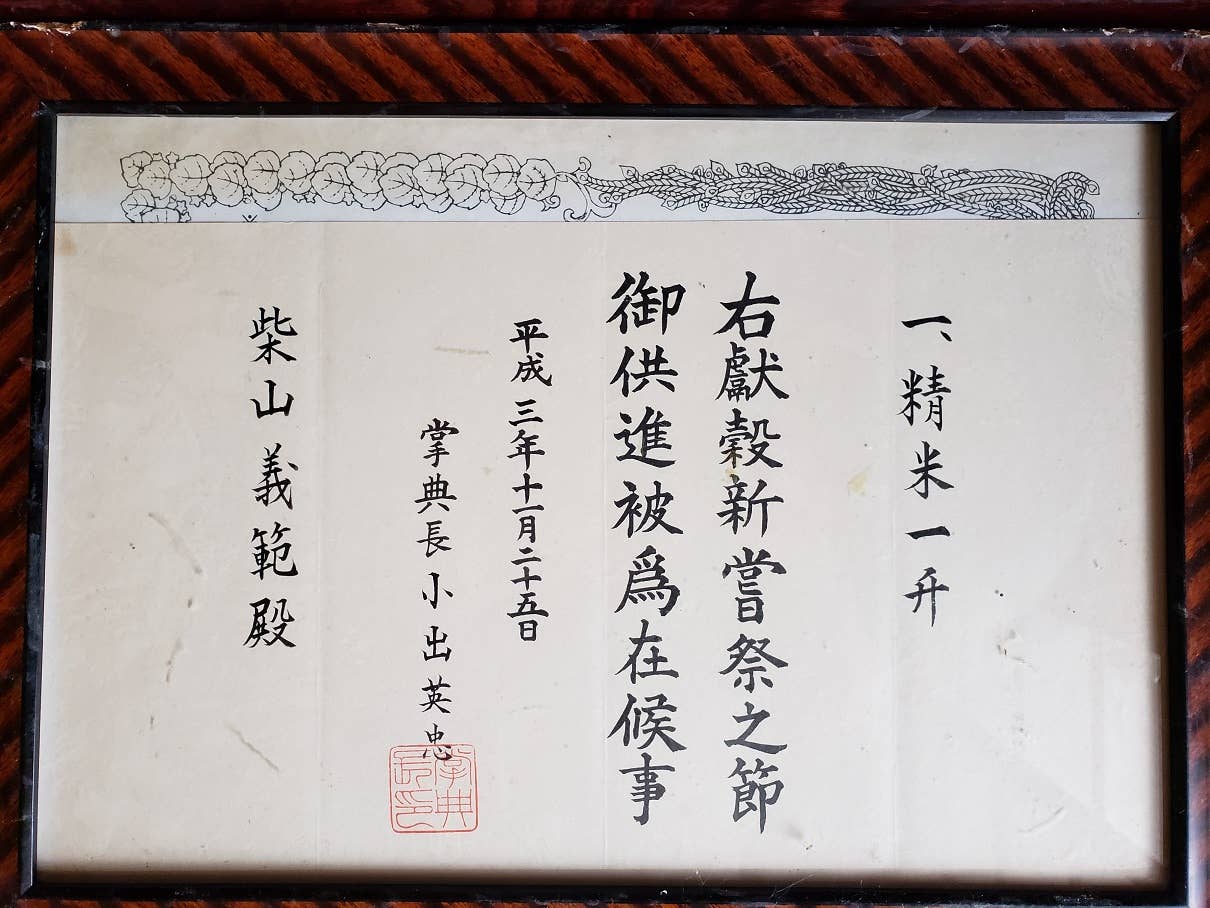 一、精米一升
右獻穀新嘗祭之節
御供進被爲在候事
平成三年十一月二十五日
掌典長小出英忠
掌典長印
柴山義範殿